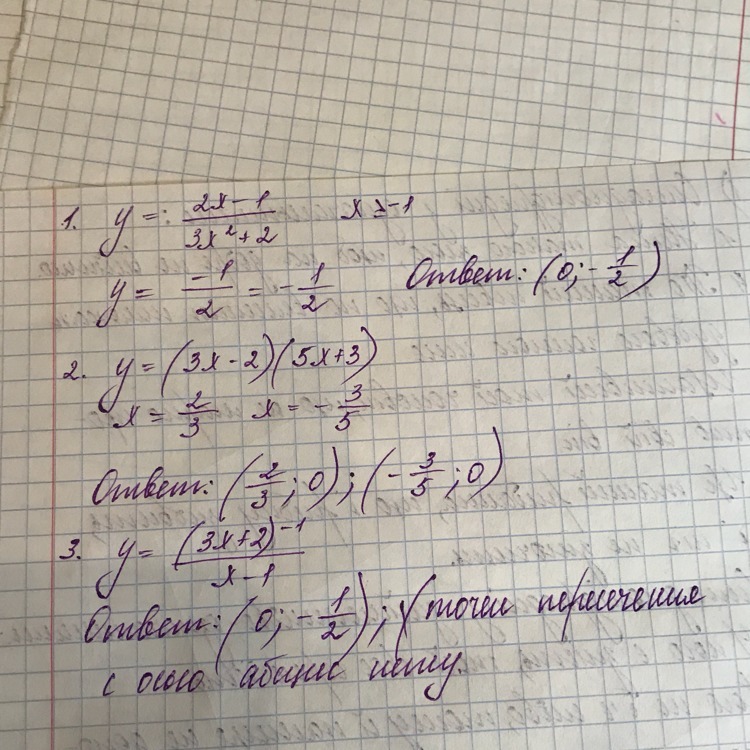 1. y =: (2x-1)/(3x²+2) x ≥ -1
y = -1/2 = -1/2 Ответ: (0; -1/2)
2. y = (3x-2)(5x+3)
x = 2/3 x = -3/5
Ответ: (2/3; 0); (-3/5; 0)
3. y = (3x+2)⁻¹/(x-1)
Ответ: (0; -1/2); (точки пересечения
с осью абцис нету.